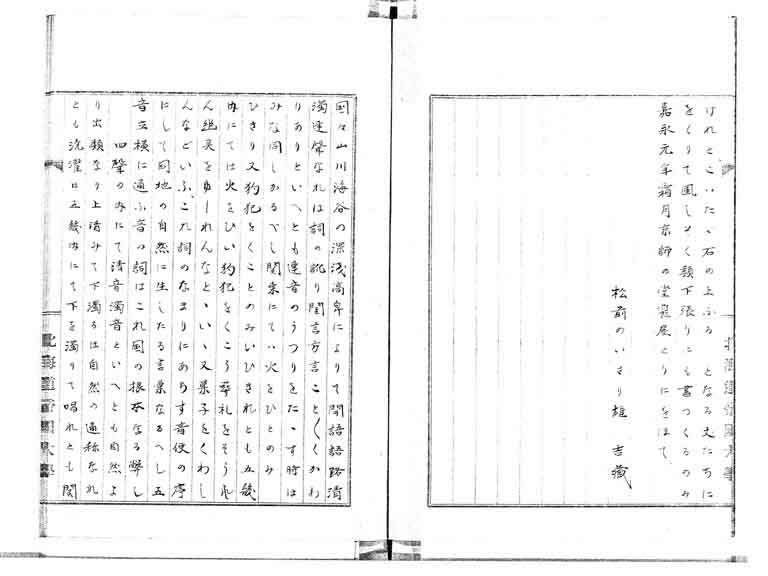 けれとこいたゝ石の上ふる となる丈たちに
をくりて風しそく鞍下張りにも書つくるのみ
嘉永元年霜月京師の堂 とりにをはて
松前のいさり雄 吉蔵
国々山川海谷の深浅高卑によりて聞語語路清
濁違聲なれは詞の訛り 言方言こと〱くかわ
りありといへとも連音のうつりをたゝす時は
みな同しかるへし関東にてハ火をひとのみ
ひきり又約犯をくことのみいひきれとも五畿
内にては火をひい約犯をくこう 礼をそうれ
ん絶 をゆーれんなとゝいゝ又菓子をくわし
んなといふこれ詞のなまりにあらす音便の序
にして国地の自然に生したる言葉なるへし五
音立横に通ふ音の詞はこれ国の根本なる し
四聲の内にて清音濁音といへとも自然よ
り出類なり上清みて下濁るは自然の通称なれ
とも洗濯は五畿内にて下を濁りて唱れとも関
北海道帝国大學